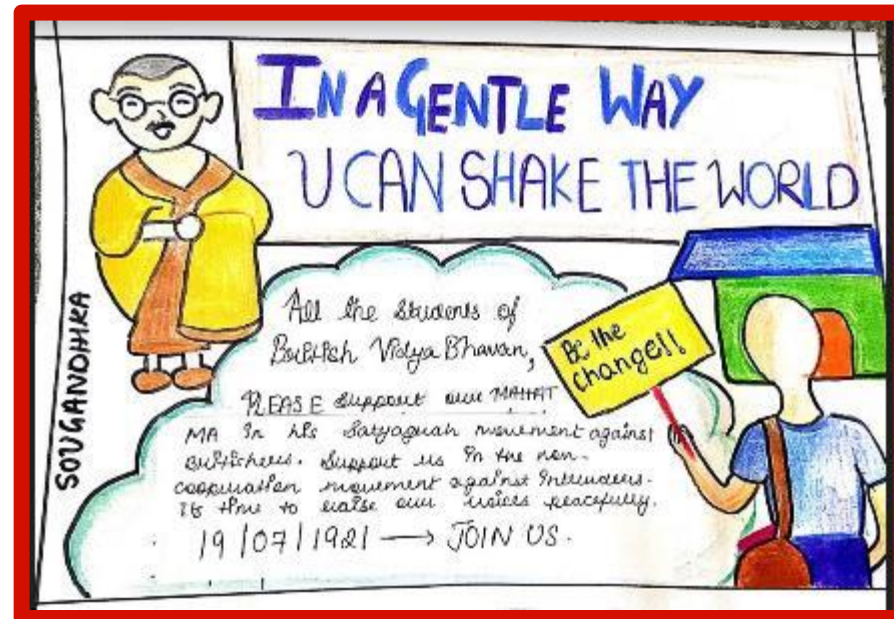 IN A GENTLE WAY
U CAN SHAKE THE WORLD
SOUGANDHIKA
All the students of
British Vidya Bhavan,
PLEASE support our MAHAT
MA In his Satyagrah movement against
Britishers. Support us In the non-
cooperation movement against Intruders.
Its time to raise our voices peacefully.
19/07/1921 → JOIN US.
Be the
change!!